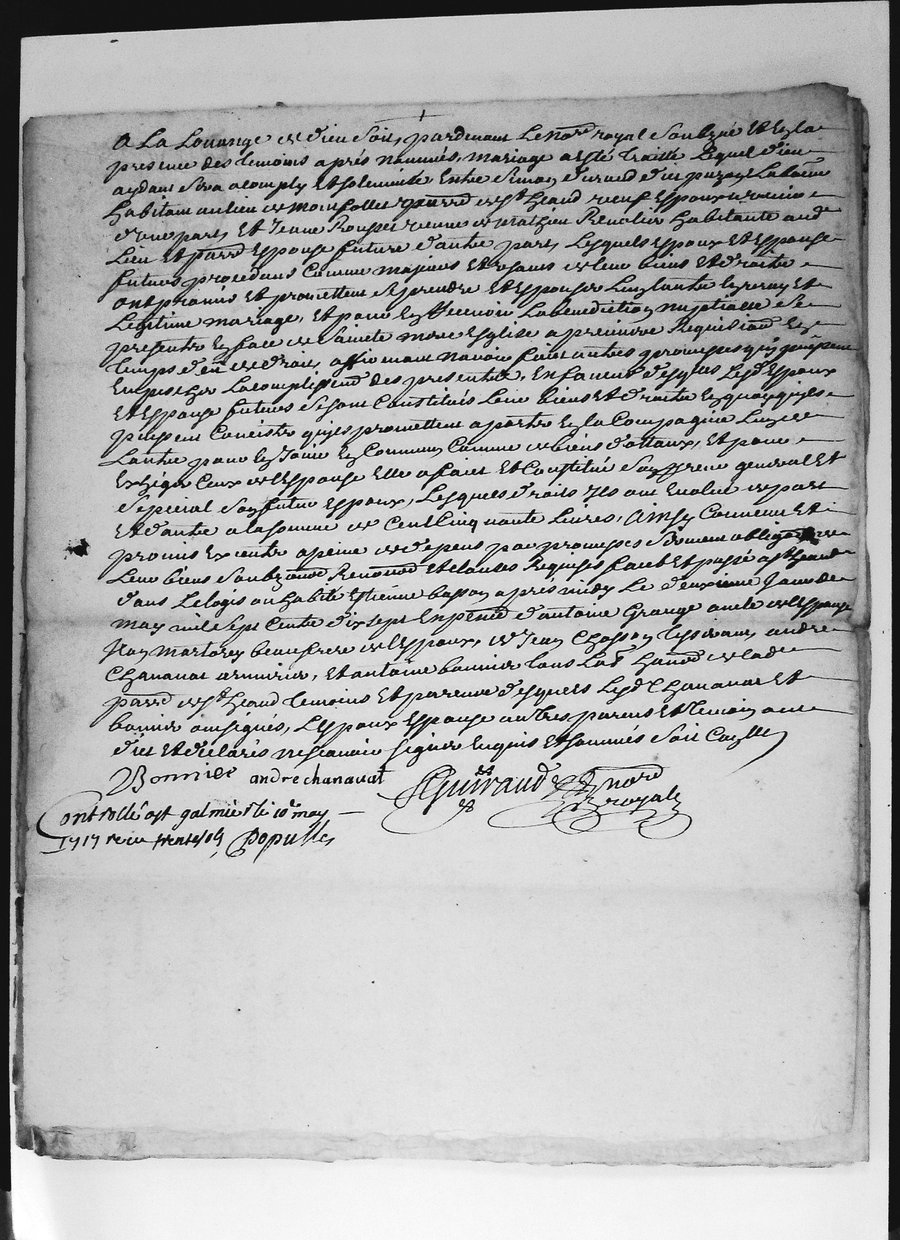 A La Louange de dieu Soit, pardevant Le No.re royal Soubzné Et En la
presence des temoins aprés nommés, mariage a esté traitté Lequel dieu
aydant Sera acomply Et solemnizé Entre Simon durand
habitant au lieu de parr.e de S.t heand veuf Espoux avenir
d'une part, Et Jeane Rousset vefve de mathieu habitante aud.
Lieu Et parr.e Espouse future d'autre part, Lesquels Espoux Et Espouse
futurs procedans Comme majeurs Et de leur biens Et droits
ont promis Et promettent Se prendre Et Espouser L'un l'autre En vray Et
Legitime mariage, Et pour En recevoir La benediction nuptialle Se
presenter En face de Sainte mere Eglise a premiere Requisition
temps d'eu de droit, affirmant n'avoir fait autres promesses qui puissent
Empescher L'acomplissem.t des presentes, En faveur desquelles Lesd. Espoux
Et Espouse futurs Se sont Constitués Leur biens Et droits En quoy qu'ils
puissent Consister qu'ils promettent aporter En la Compagnie L'un de
L'autre pour En Jouir En Commun Comme de biens dottaux, Et pour
Exiger Ceux de L'Espouse Elle a fait Et Constitué Son procureur general Et
Special Son futur Espoux, Lesquels droits Ils ont Evalué de part
Et d'autre a la somme de Cent Cinquante Livres, Ainsy Convenu Et
promis a peine de depens par promesses Serment obligation de
Leur biens Renon.on Et clauses Requises fait Et passé a S.t heand
dans Le logis ou habite Estienne basson aprés midy Le deuxieme Jour de
may mil Sept Cents dix Sept En p.nce d'antoine Grange oncle de L'Espouse
Jean beaufrere de L'Espoux, de Jean Chasson tisserant, andré
Chanavat armurier, Et antoine bonnier tous de lad.
parr.e de S.t heand temoins Et parents desquels Lesd. Chanavat Et
bonnier ont signés, L'Espoux Espouse autres parens Et temoins ont
dit Et declarés ne Scavoir signer Enquis Et sommés
Bonnier andre chanavat
Guiraud no.re
royal
Controllé a st galmier le 10e may
1717 receu
Populle